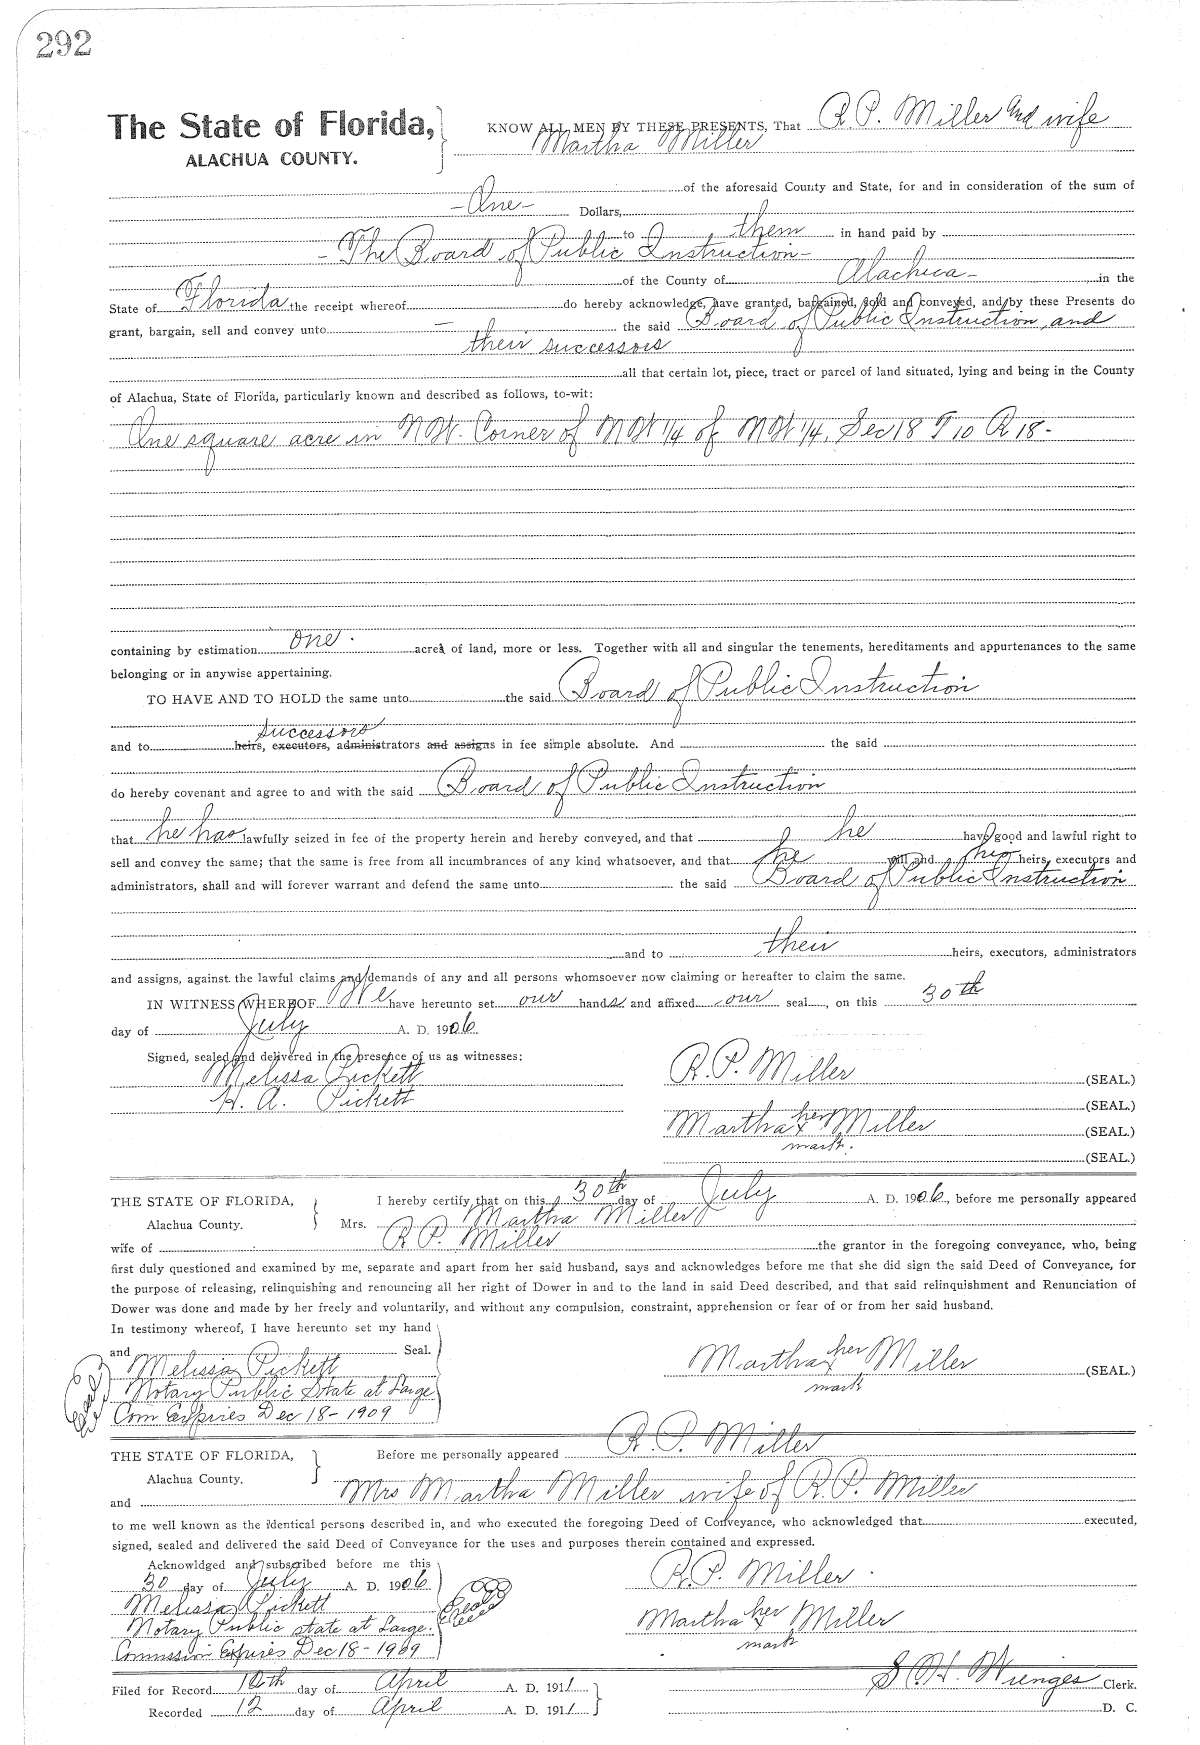 292
The State of Florida, KNOW ALL MEN BY THESE PRESENTS, That R. P. Miller and wife
ALACHUA COUNTY. Martha Miller
of the aforesaid County and State, for and in consideration of the sum of
- One - Dollars,
to them in hand paid by
- The Board of Public Instruction -
of the County of Alachua - in the
State of Florida the receipt whereof do hereby acknowledge, have granted, bargained, sold and conveyed, and by these Presents do
grant, bargain, sell and convey unto — the said Board of Public Instruction and
their successors
all that certain lot, piece, tract or parcel of land situated, lying and being in the County
of Alachua, State of Florida, particularly known and described as follows, to-wit:
One square acre in N.W. Corner of N W 1/4 of N W 1/4. Sec 18 T 10 R 18 -
containing by estimation one. acres of land, more or less. Together with all and singular the tenements, hereditaments and appurtenances to the same
belonging or in anywise appertaining.
TO HAVE AND TO HOLD the same unto the said Board of Public Instruction
successors
and to heirs, executors, administrators and assigns in fee simple absolute. And the said
do hereby covenant and agree to and with the said Board of Public Instruction
that he has lawfully seized in fee of the property herein and hereby conveyed, and that he have good and lawful right to
sell and convey the same; that the same is free from all incumbrances of any kind whatsoever, and that he will and his heirs, executors and
administrators, shall and will forever warrant and defend the same unto the said Board of Public Instruction
and to their heirs, executors, administrators
and assigns, against the lawful claims and demands of any and all persons whomsoever now claiming or hereafter to claim the same.
IN WITNESS WHEREOF We have hereunto set our hands and affixed our seal, on this 30th
day of July A. D. 1906.
Signed, sealed and delivered in the presence of us as witnesses:
Melissa Pickett R. P. Miller (SEAL.)
H. A. Pickett (SEAL.)
Martha her x mark. Miller (SEAL.)
(SEAL.)
THE STATE OF FLORIDA, I hereby certify that on this 30th day of July A. D. 1906, before me personally appeared
Alachua County. Mrs. Martha Miller
wife of R. P. Miller the grantor in the foregoing conveyance, who, being
first duly questioned and examined by me, separate and apart from her said husband, says and acknowledges before me that she did sign the said Deed of Conveyance, for
the purpose of releasing, relinquishing and renouncing all her right of Dower in and to the land in said Deed described, and that said relinquishment and Renunciation of
Dower was done and made by her freely and voluntarily, and without any compulsion, constraint, apprehension or fear of or from her said husband.
In testimony whereof, I have hereunto set my hand
and Seal.
Melissa Pickett Martha her x mark Miller (SEAL.)
Notary Public State at Large
Com Expires Dec 18 - 1909
Seal
THE STATE OF FLORIDA, Before me personally appeared R. P. Miller
Alachua County.
and Mrs Martha Miller wife of R. P. Miller
to me well known as the identical persons described in, and who executed the foregoing Deed of Conveyance, who acknowledged that executed,
signed, sealed and delivered the said Deed of Conveyance for the uses and purposes therein contained and expressed.
Acknowldged and subscribed before me this
30 day of July A. D. 1906 R. P. Miller.
Melissa Pickett Seal
Notary Public state at Large. Martha her x mark Miller
Commission Expires Dec 18 - 1909
Filed for Record 12th day of April A. D. 1911 S. H. Wienges Clerk.
Recorded 12 day of April A. D. 1911 D. C.